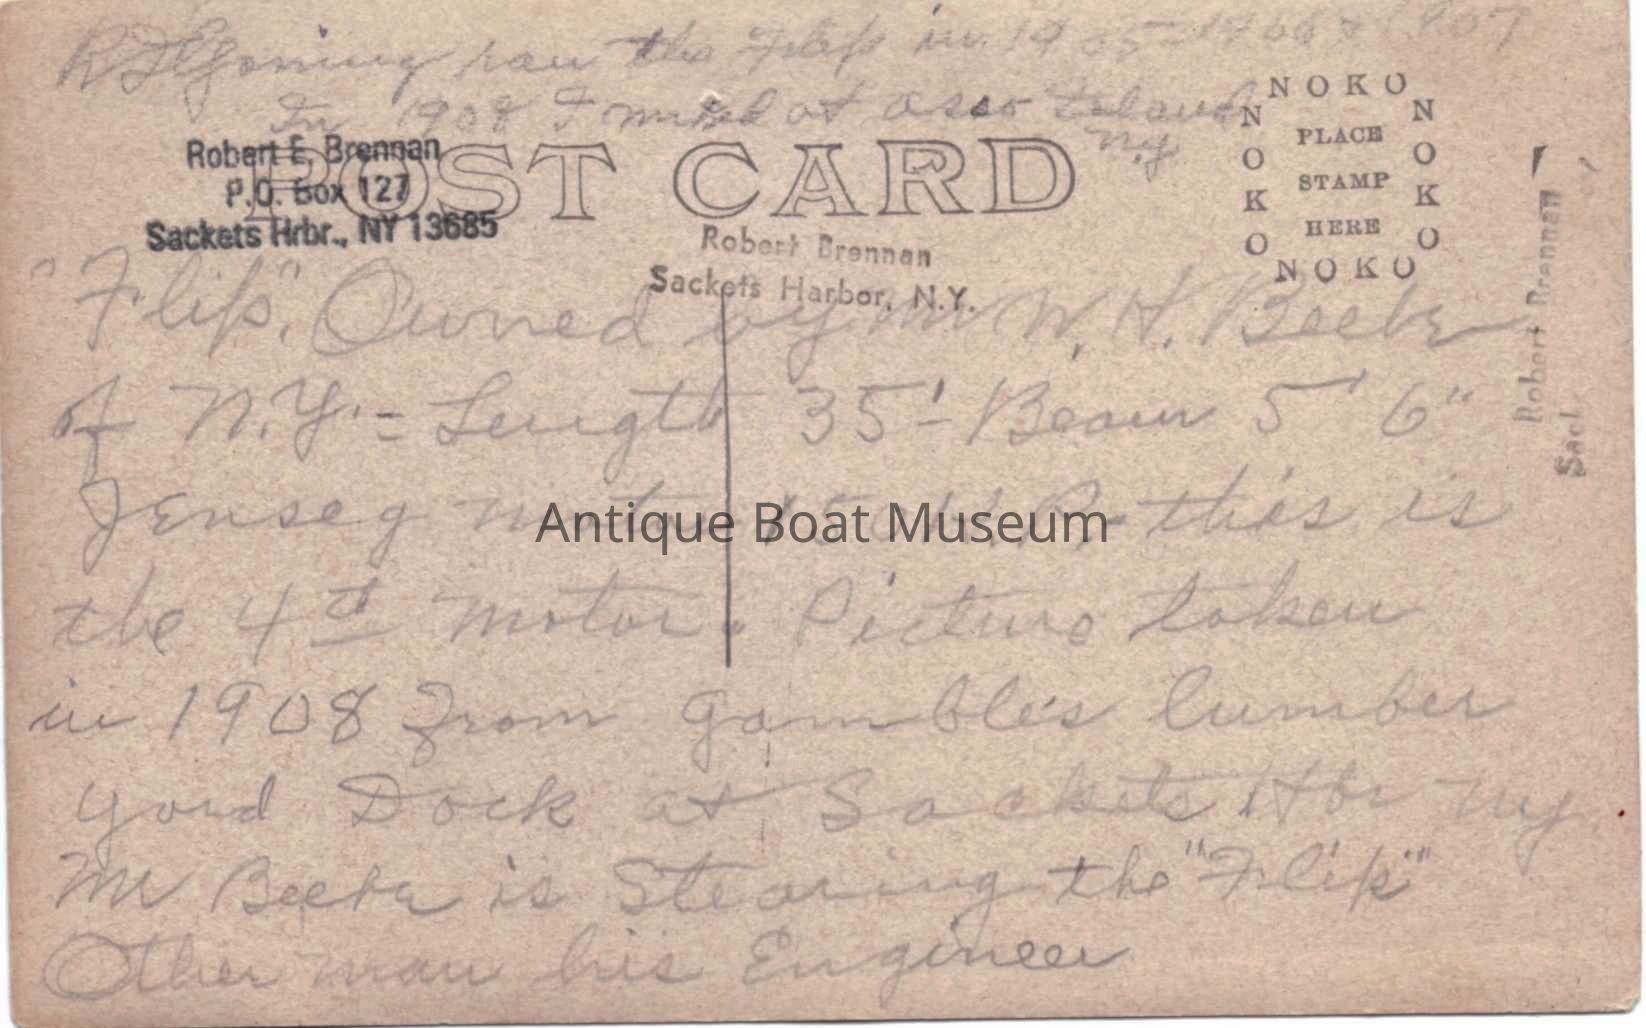 ran the Flip in 1905-1906 & 1907
In 1908 I at Island
N.Y
POST CARD
Robert E. Brennan
P.O. Box 127
Sackets Hrbr., NY 13685
Robert Brennan
Sackets Harbor, N.Y.
NOKO
NOKO
NOKO
NOKO
PLACE
STAMP
HERE
Robert Brennan
Sack
"Flip". Owned by Mr W. H. Beebe
of N.Y. = Length 35'- Beam 5' 6"
this is
the 4th motor. Picture taken
in 1908 From Gambles lumber
yard Dock at Sackets Hbr NY
Mr Beebe is Stearing the "Flip"
Other man his Engineer
Antique Boat Museum